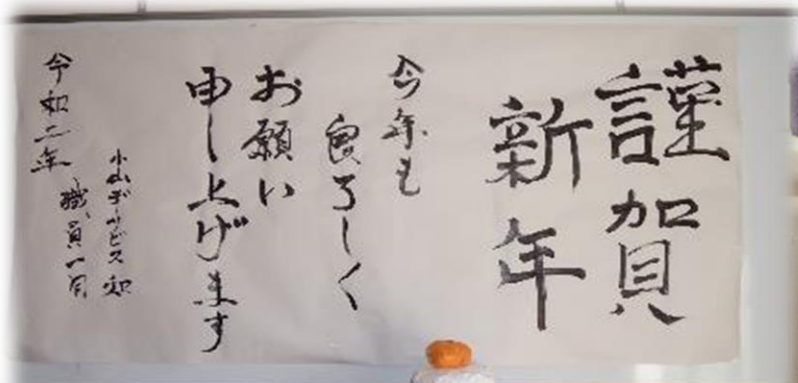 謹賀
新年
今年も
良ろしく
お願い
申し上げます
小山デイサービス
職員一同
令和二年